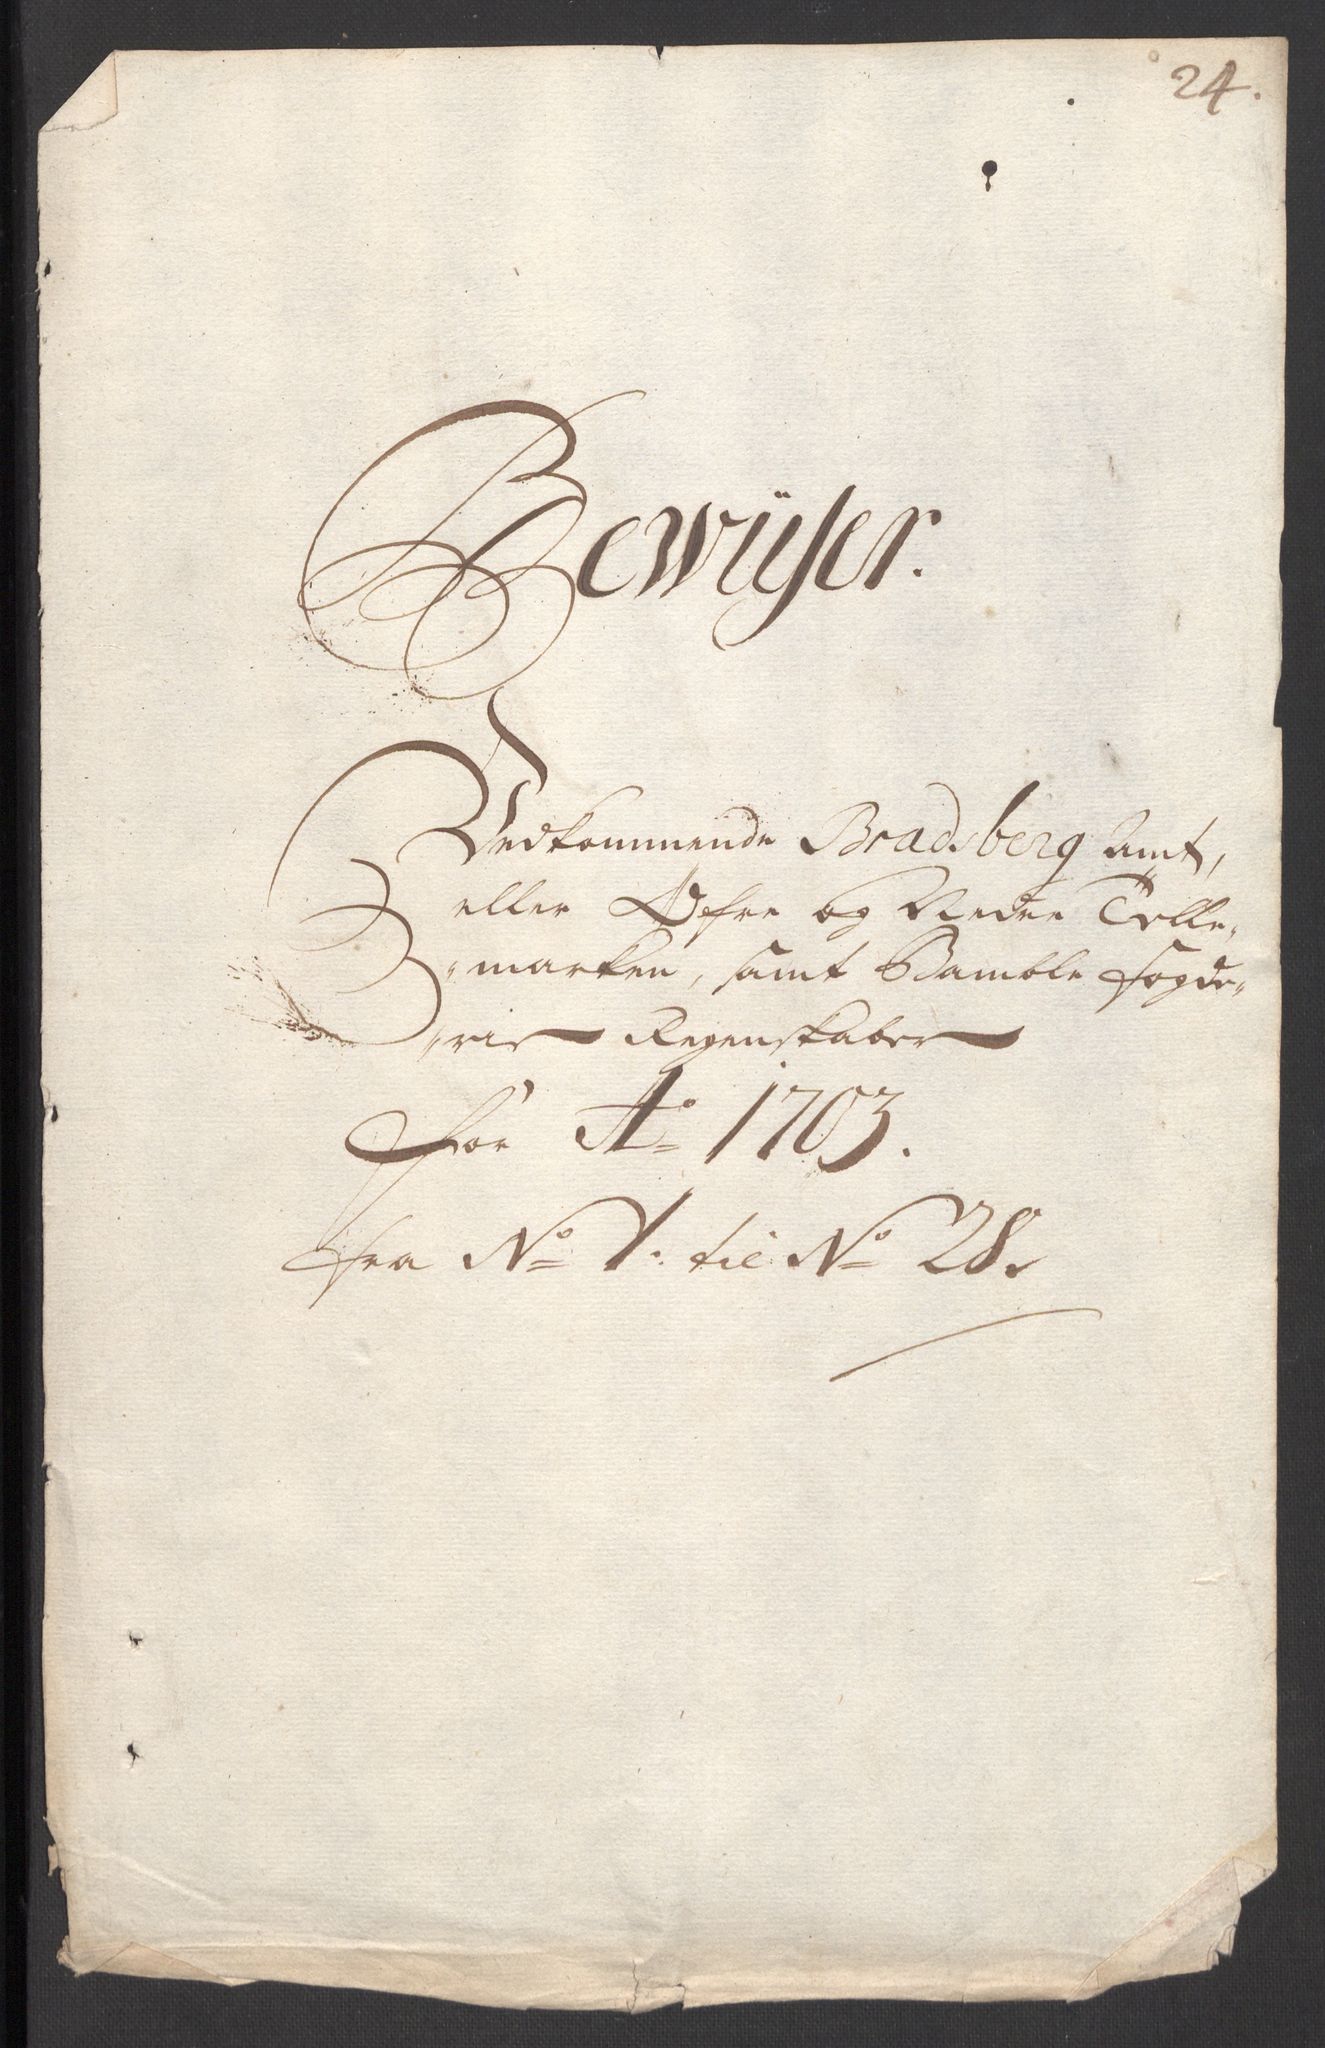 24.
Bewÿser.
Vedkommende Bradsberg Amt,
eller Øfre og Nedre Telle-
-marken, samt Bamble fogde-
-rier Regenskaber
for Ao 1703.
fra No 1. til No 28.